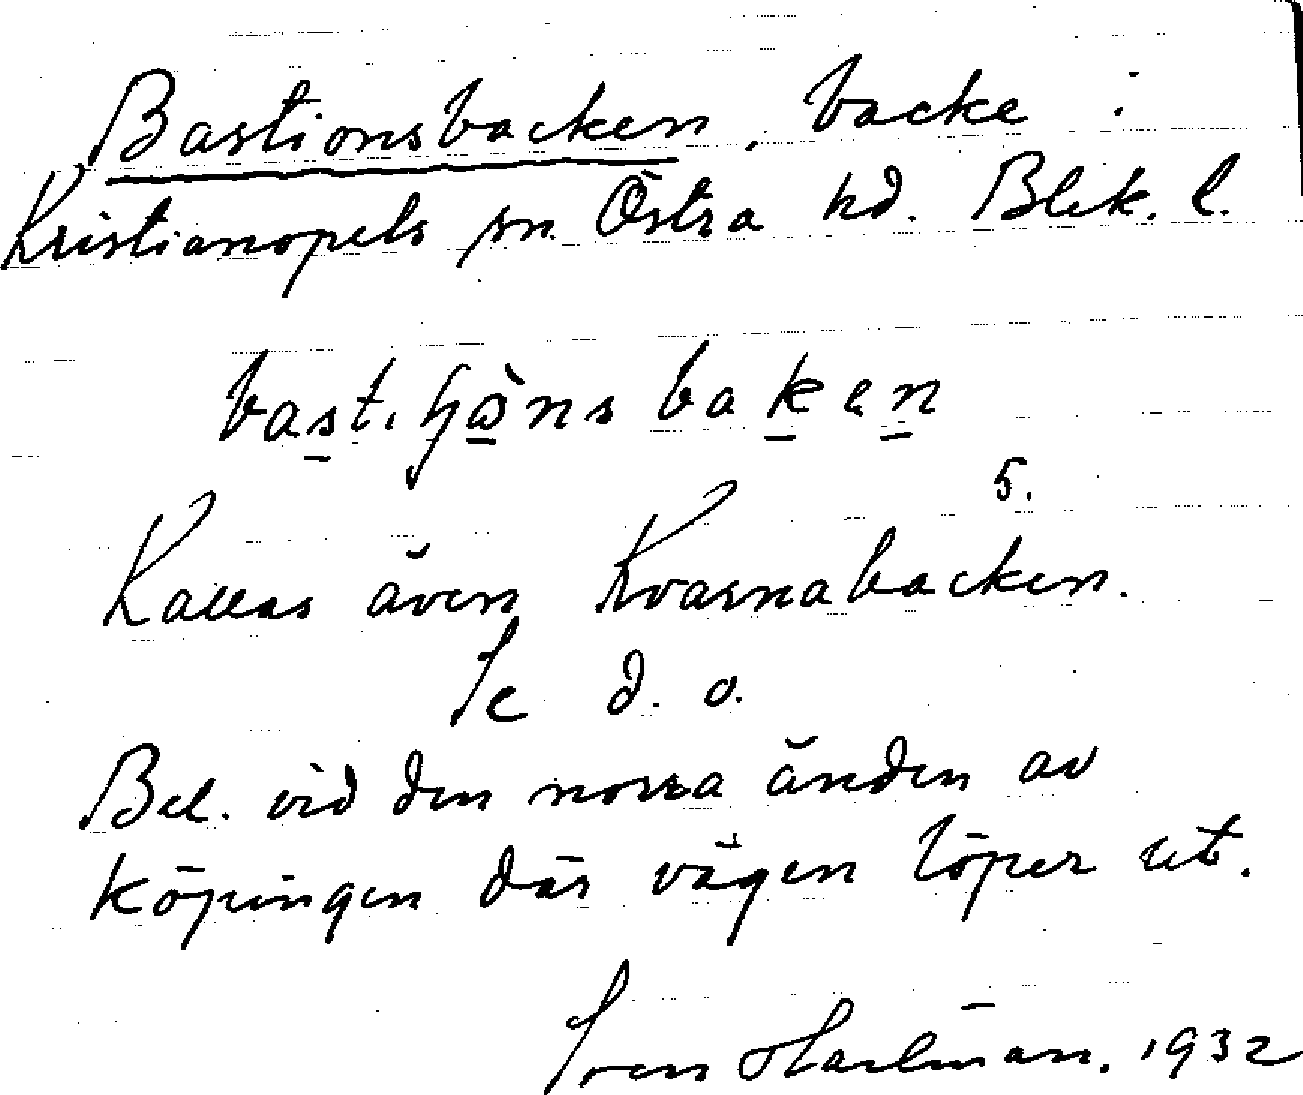 Bastionsbacken, backe i
Kristianopels sn. Östra hd. Blek. l.
5.
Kallas även Kvarnabacken.
Se d. o.
Bel. vid den norra änden av
köpingen där vägen löper ut.
Sven Hartman. 1932